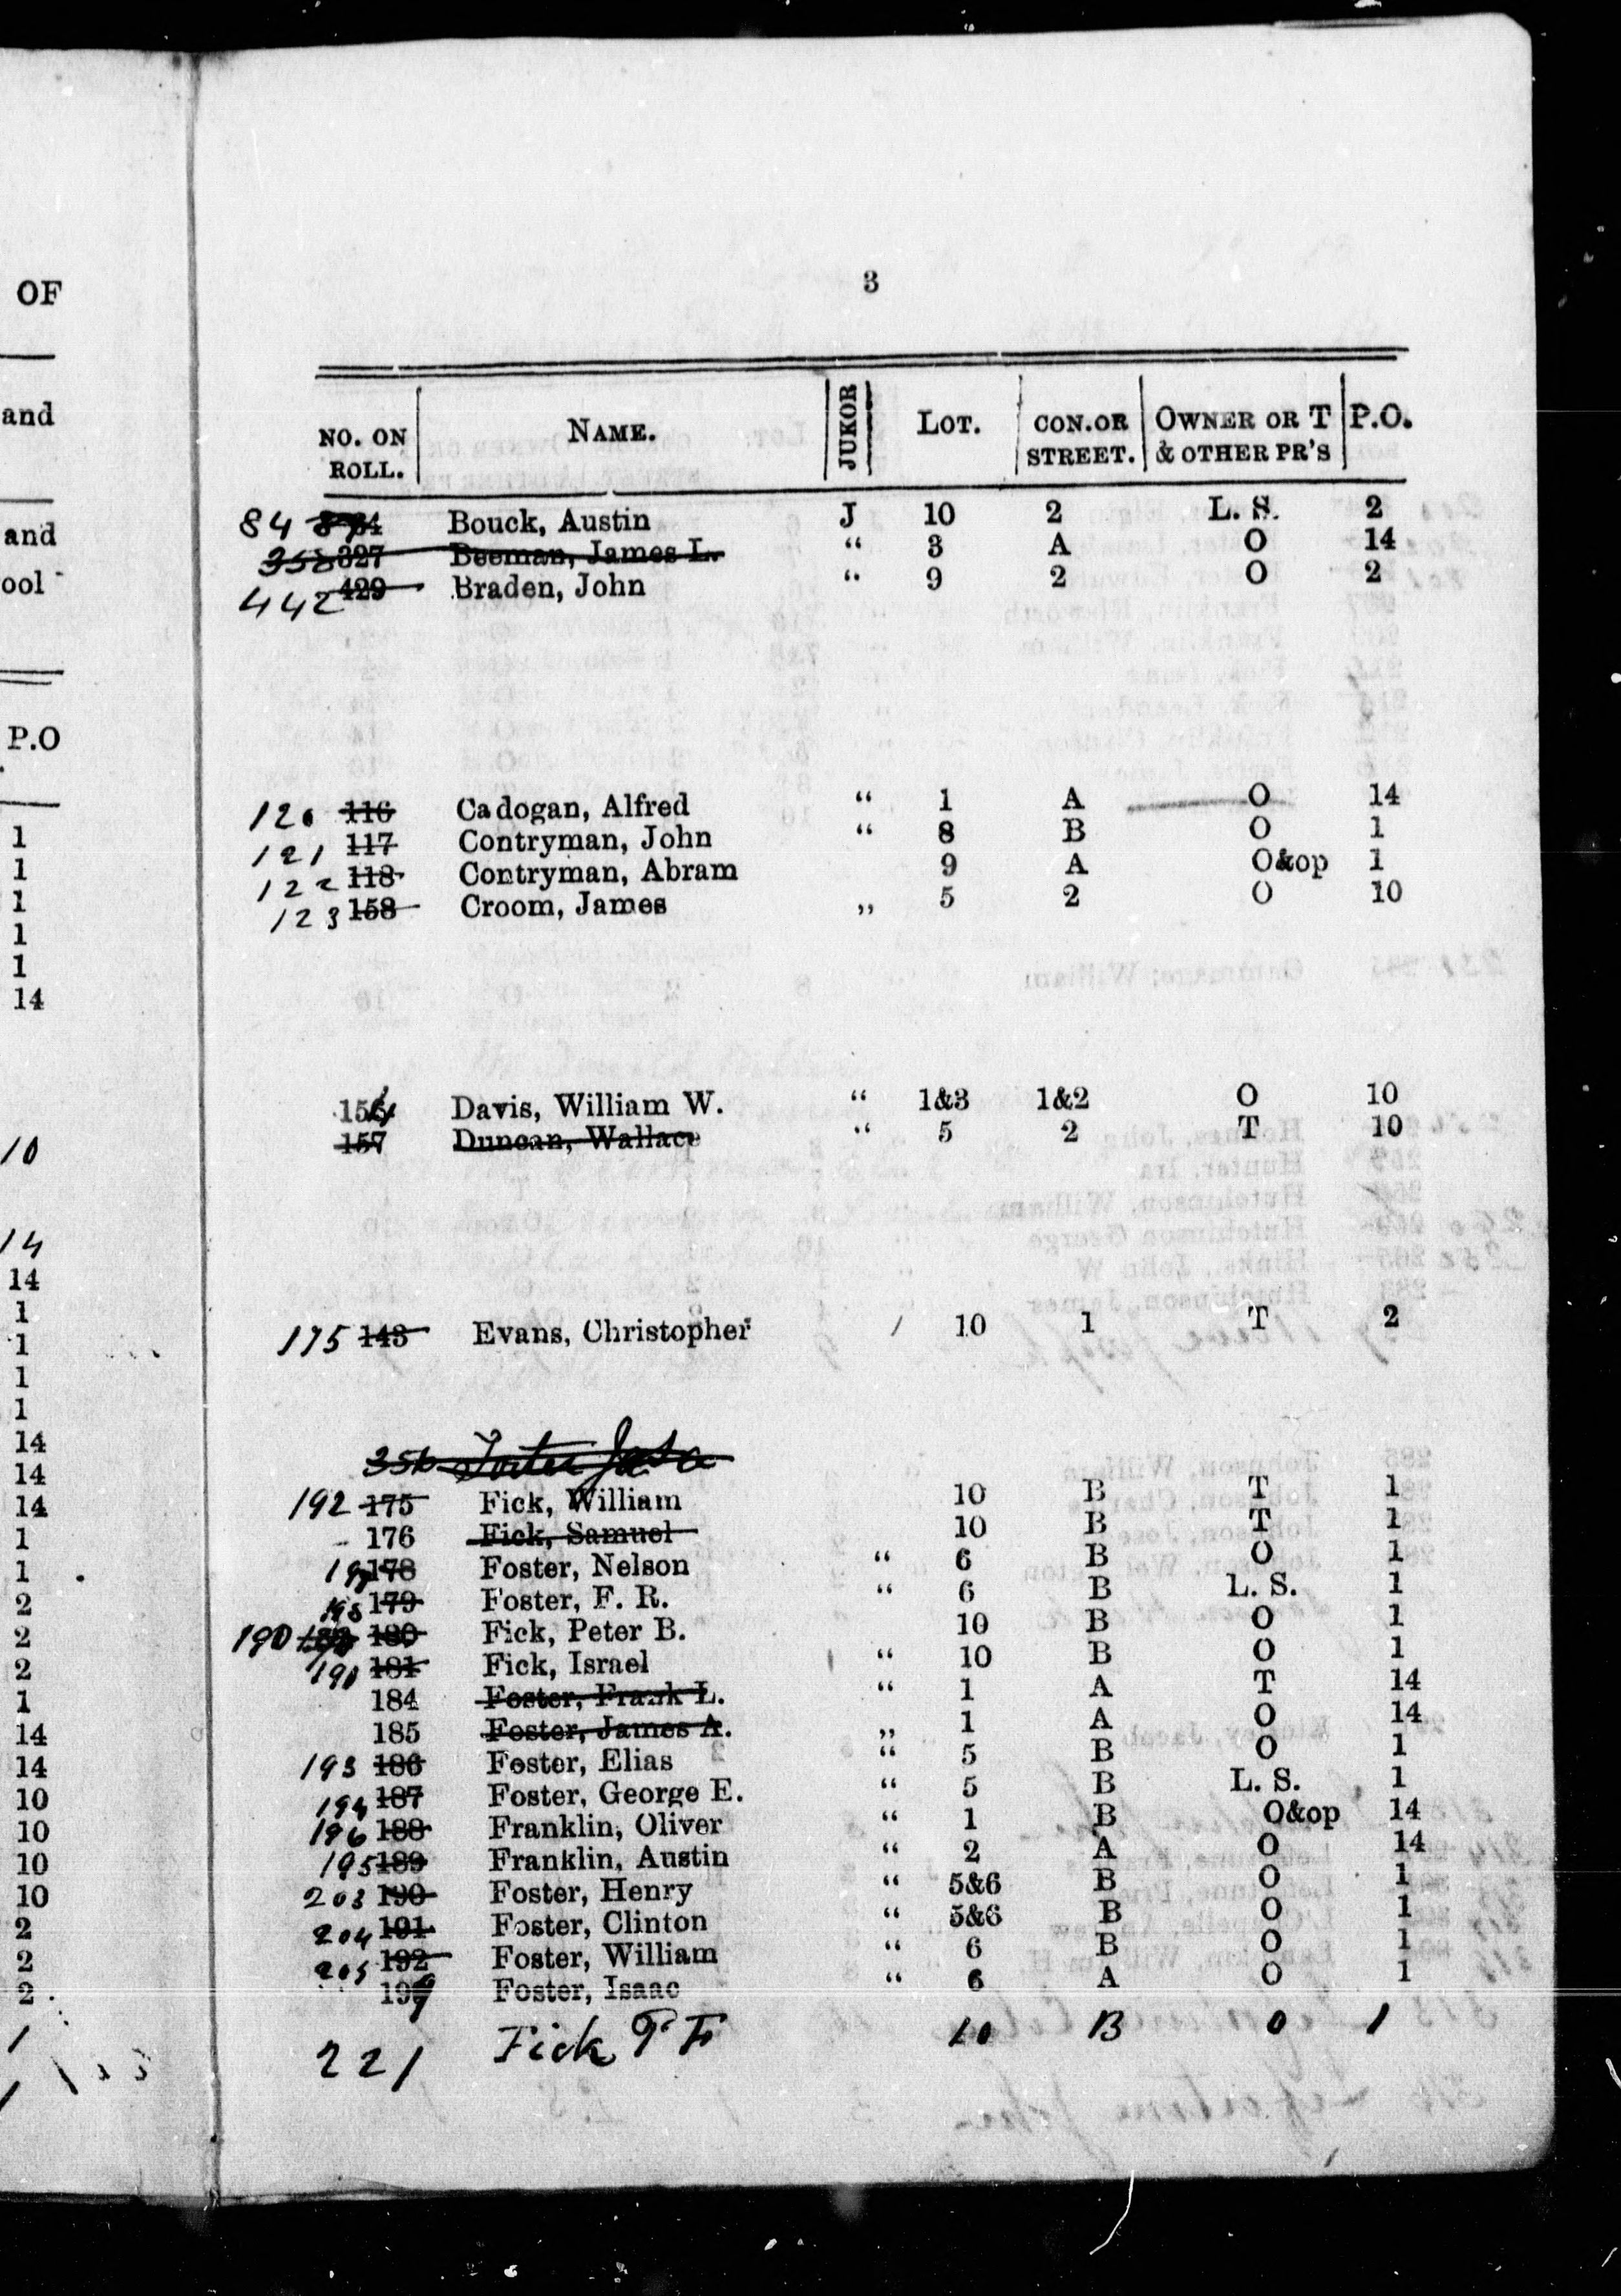 OF
and
and
ool
P.O
1
1
1
1
1
14
10
14
14
1
1
1
1
14
14
14
1
1
2
2
2
1
14
14
10
10
10
10
2
2
2
1
3
NO. ON ROLL. NAME. JUKOR LOT. CON. OR STREET. OWNER OR T & OTHER PR'S P.O.
84 Bouck, Austin J 10 2 L. S. 2
358 327 Beeman, James L. “ 3 A O 14
442 429 Braden, John “ 9 2 O 2
120 116 Cadogan, Alfred “ 1 A O 14
121 117 Contryman, John “ 8 B O 1
122 118 Contryman, Abram 9 A O&op 1
123 158 Croom, James „ 5 2 O 10
Davis, William W. “ 1&3 1&2 O 10
157 Duncan, Wallace “ 5 2 T 10
175 143 Evans, Christopher / 10 1 T 2
192 175 Fick, William 10 B T 1
176 Fick, Samuel 10 B T 1
178 Foster, Nelson “ 6 B O 1
179 Foster, F. R. “ 6 B L. S. 1
190 180 Fick, Peter B. 10 B O 1
191 181 Fick, Israel “ 10 B O 1
184 Foster, Frank L. “ 1 A T 14
185 Foster, James A. „ 1 A O 14
193 186 Foster, Elias “ 5 B O 1
194 187 Foster, George E. “ 5 B L. S. 1
196 188 Franklin, Oliver “ 1 B O&op 14
195 189 Franklin, Austin “ 2 A O 14
203 190 Foster, Henry “ 5&6 B O 1
204 191 Foster, Clinton “ 5&6 B O 1
205 192 Foster, William “ 6 B O 1
Foster, Isaac “ 6 A O 1
221 Fick P F 10 B O 1